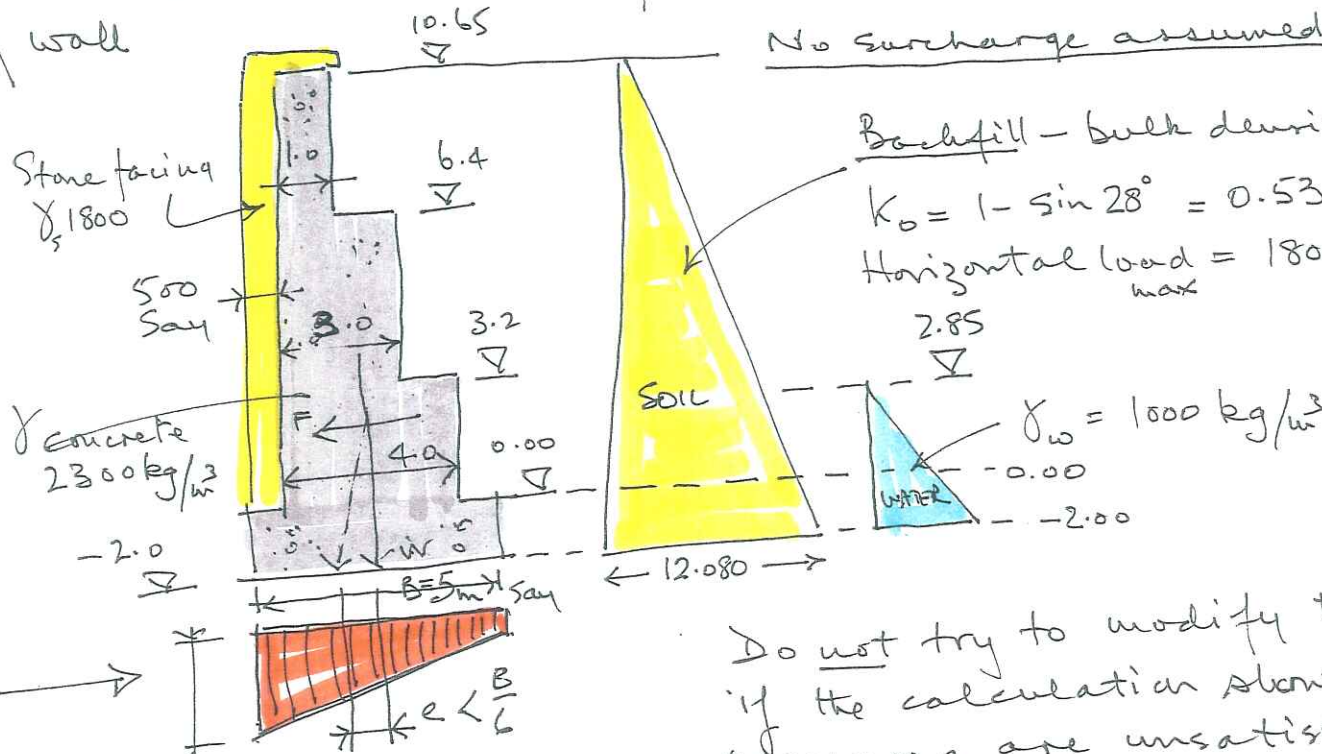 wall
10.65
No surcharge assumed
Stone facing
γs 1800
1.0
6.4
Backfill - bulk densi
K₀ = 1 - sin 28° = 0.53
Horizontal load = 180
max
500
Say
3.0
3.2
2.85
SOIL
γ concrete
2300 kg/m³
F
4.0
0.00
γw = 1000 kg/m³
-0.00
WATER
-2.00
-2.0
W
B=5m Say
12.080
e < B/6
Do not try to modify t
if the calculation show
are unsatis